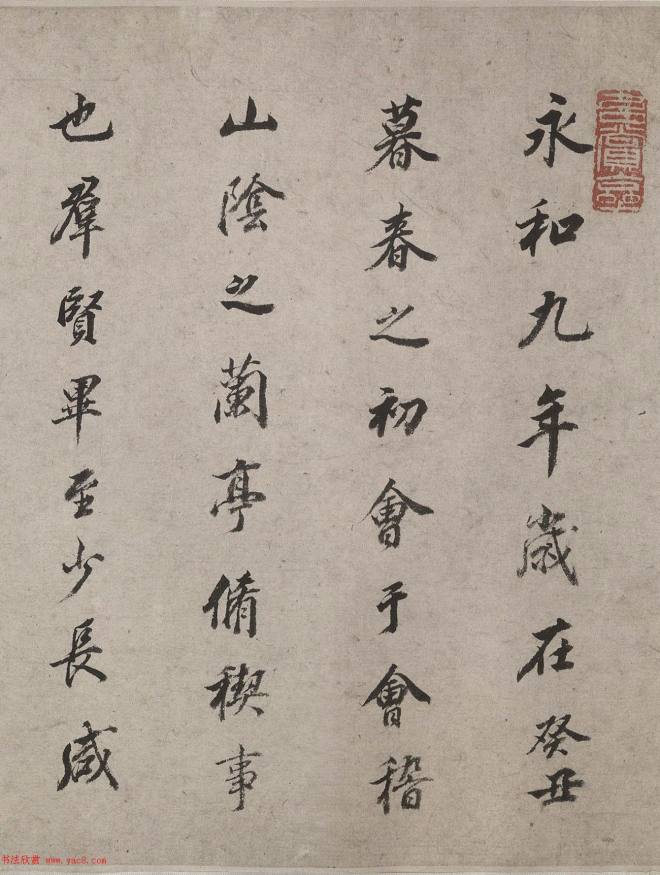 永和九年歲在癸丑
暮春之初會于會稽
山陰之蘭亭脩稧事
也羣賢畢至少長咸
书法欣赏 www.yac8.com